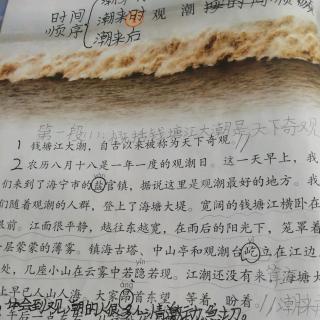 潮来前
时间 潮来时 观潮 按时间顺序
顺序 潮来后
第一段(1):概括钱塘江大潮是天下奇观
1 钱塘江大潮,自古以来被称为天下奇观 //
2 农历八月十八是一年一度的观潮日。这一天早上,我
们来到了海宁市的盐官镇,据说这里是观潮最好的地方。我
们随着观潮的人群,登上了海塘大堤。宽阔的钱塘江横卧在
眼前。江面很平静,越往东越宽,在雨后的阳光下,笼罩着
一层蒙蒙的薄雾。镇海古塔、中山亭和观潮台屹立在江边
处,几座小山在云雾中若隐若现。江潮还没有来,海塘大
上早已人山人海。大家昂首东望,等着,盼着。//潮来
体会到观潮的人很多心情激动急切。